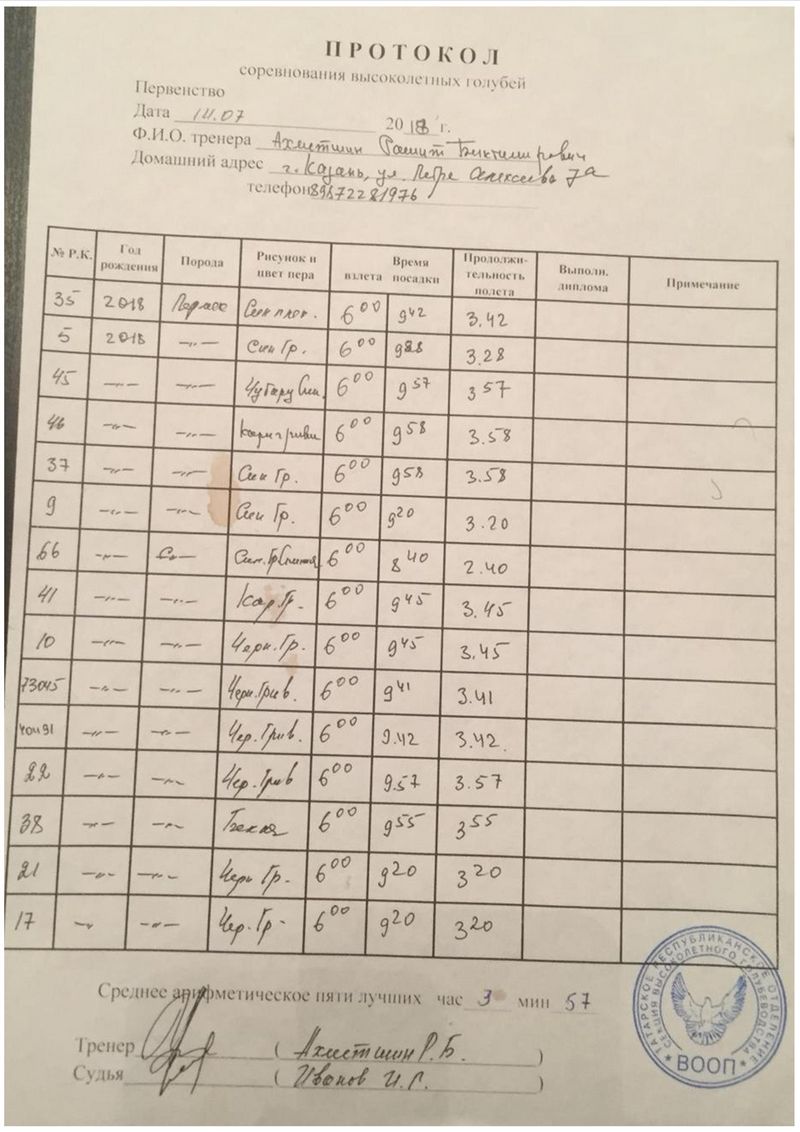 ПРОТОКОЛ
соревнования высоколетных голубей
Первенство
Дата 14.07 2018 г.
Ф.И.О. тренера Ахметшин Рашит Биктимирович
Домашний адрес г. Казань, ул. Петра Алексеева 7а
телефон 89872281976
№ Р.К. Год рождения Порода Рисунок и цвет пера Время взлета посадки Продолжи-тельность полета Выполн. диплома Примечание
35 2018 Син плек. 6 00 9 42 3.42
5 2018 —"— Син Гр. 6 00 9 28 3.28
45 —"— —"— Чубару Син. 6 00 9 57 3 57
46 —"— —"— 6 00 9 58 3.58
37 —"— —"— Син Гр. 6 00 9 58 3.58
9 —"— —"— Син Гр. 6 00 9 20 3.20
66 —"— —"— 6 00 8 40 2.40
41 —"— —"— Кар. Гр. 6 00 9 45 3.45
10 —"— —"— Черн. Гр. 6 00 9 45 3.45
73045 —"— —"— Черн. Грив. 6 00 9 41 3.41
—"— —"— Чер. Грив. 6 00 9.42 3.42.
22 —"— —"— Чер. Грив 6 00 9.57 3.57
38 —"— —"— 6 00 9 55 3 55
21 —"— —"— Черн Гр. 6 00 9 20 3 20
17 —"— —"— Чер. Гр 6 00 9 20 3 20
Среднее арифметическое пяти лучших час 3 мин 57
Тренер ( Ахметшин Р. Б. )
Судья ( Иванов И. С. )
ТАТАРСКОЕ РЕСПУБЛИКАНСКОЕ ОТДЕЛЕНИЕ
СЕКЦИЯ ВЫСОКОЛЕТНОГО ГОЛУБЕВОДСТВА
ВООП